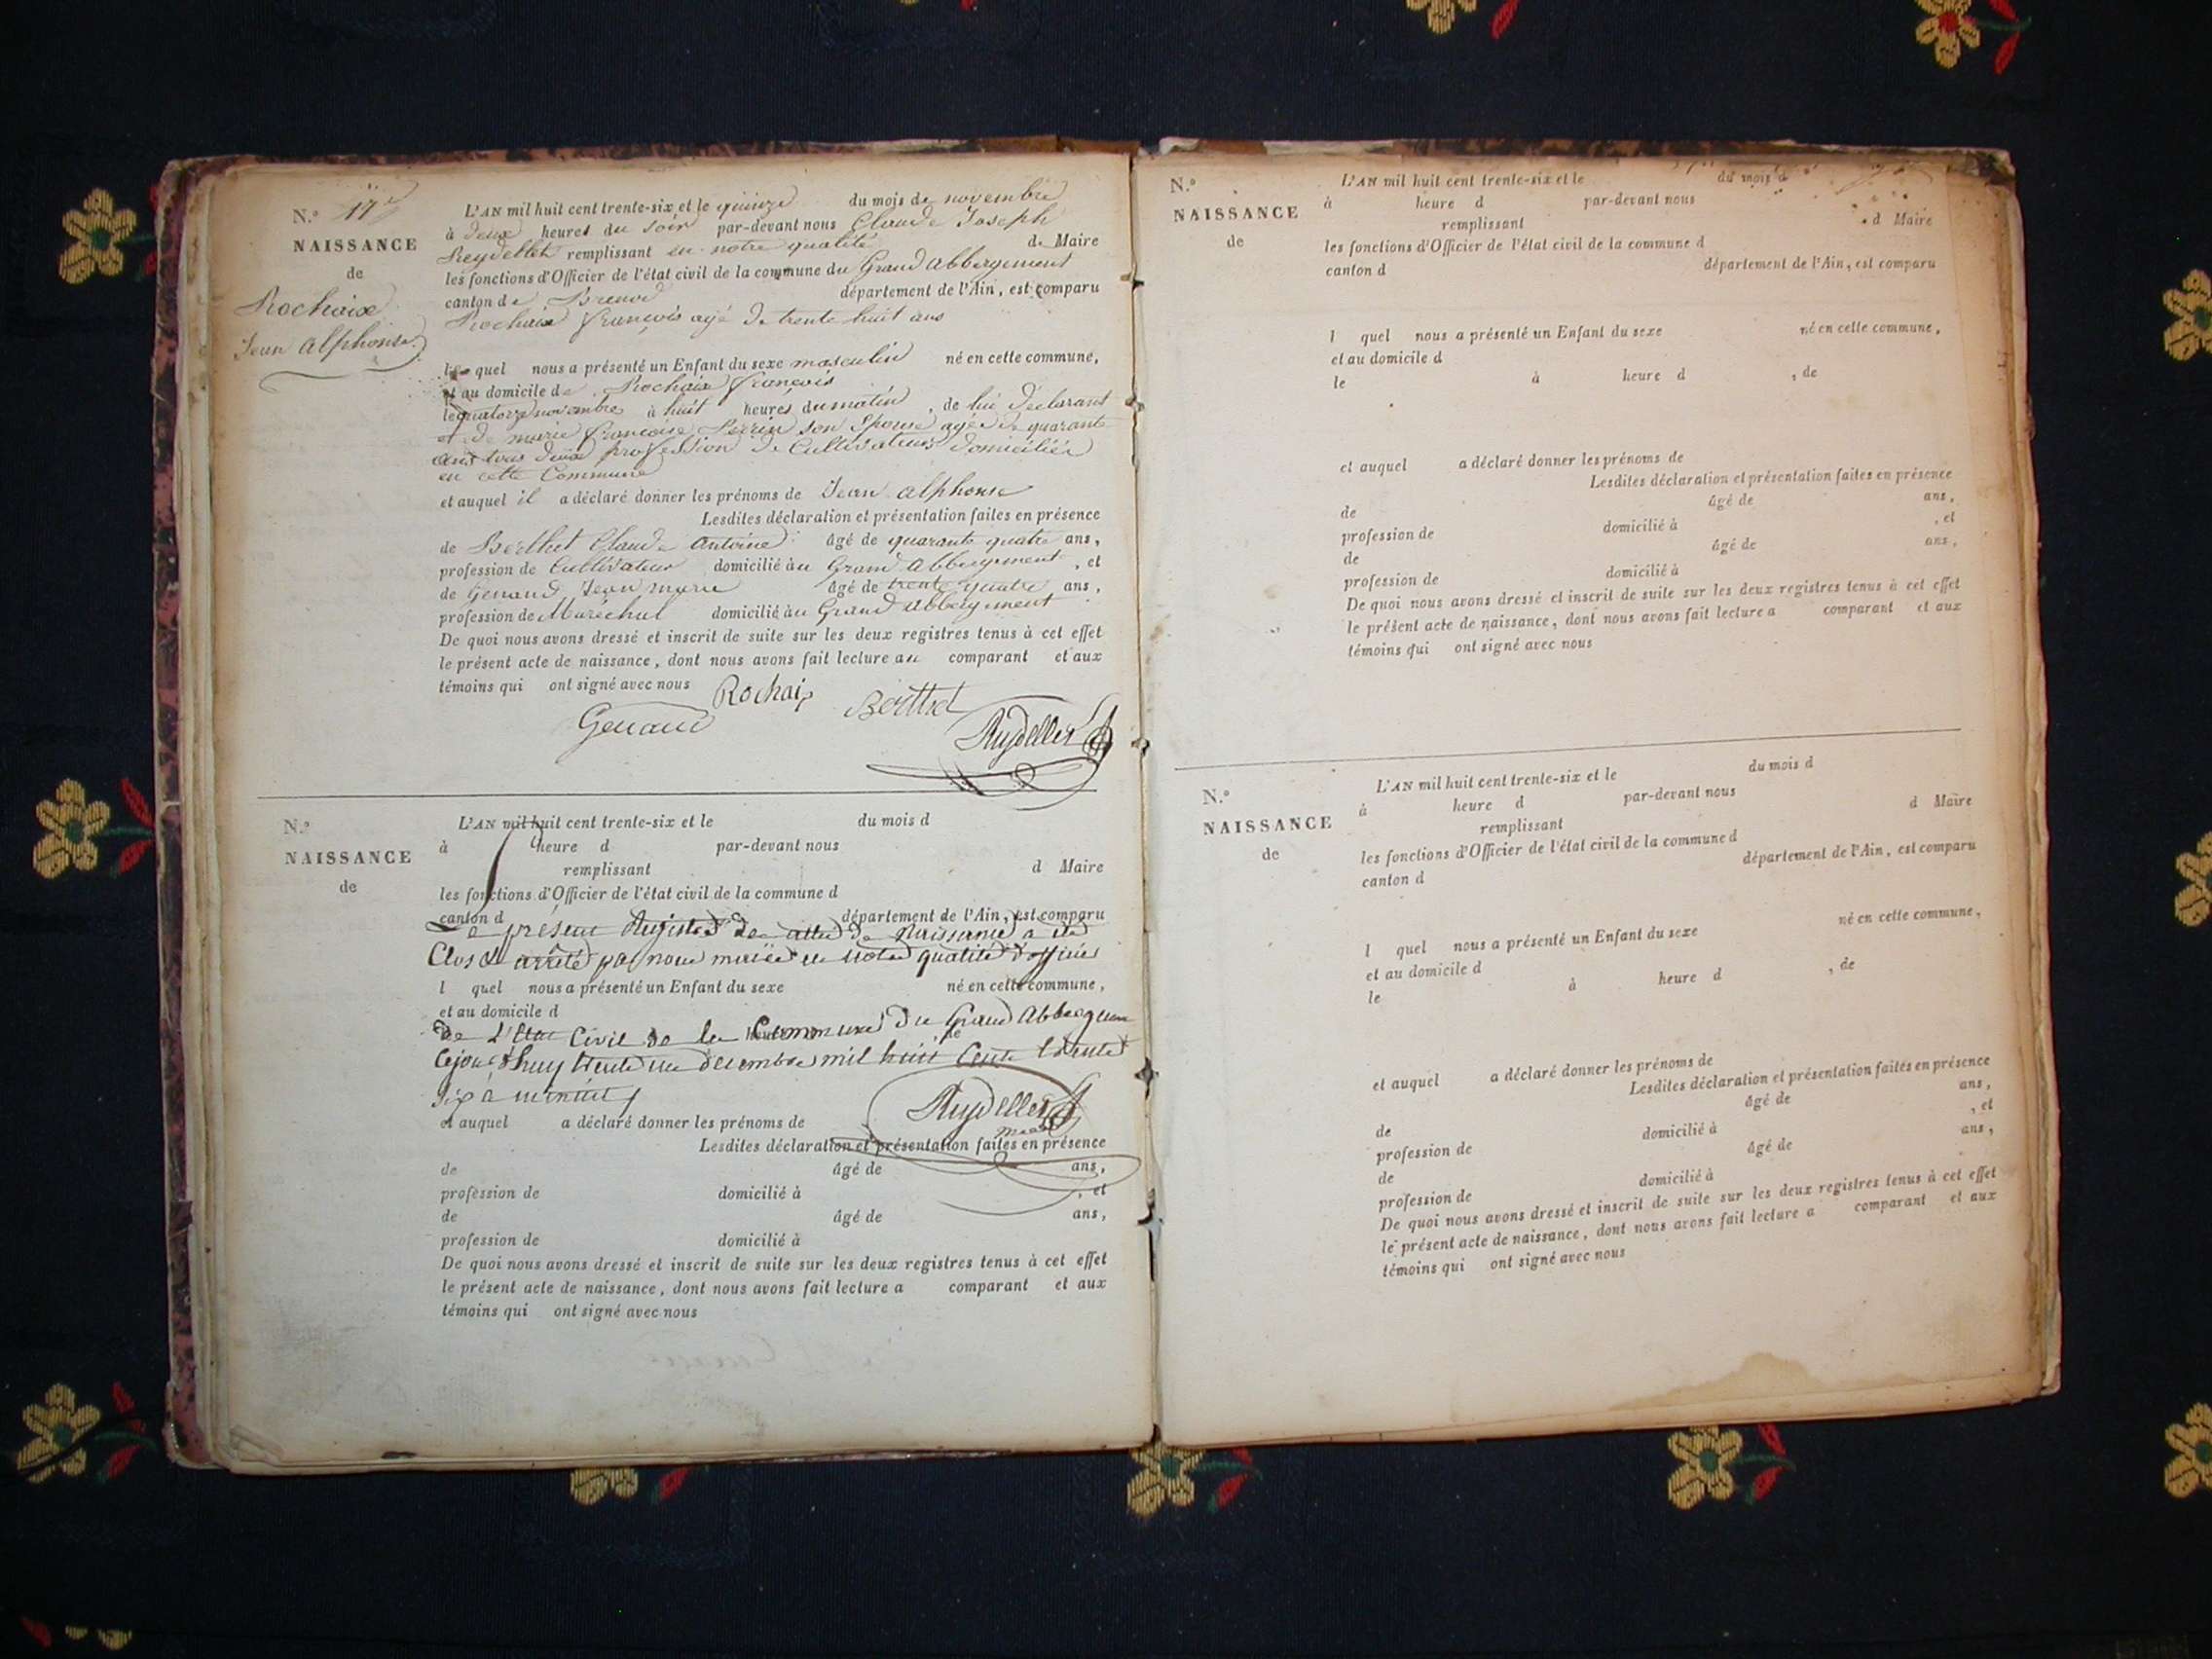 N.° 17
L'AN mil huit cent trente-six et le quinze du mois de novembre
NAISSANCE
à deux heures du soir par-devant nous Claude Joseph
Reydellet remplissant en notre qualité de Maire
de
les fonctions d'Officier de l'état civil de la commune du Grand Abbergement
Rochaix
canton de Brenod département de l'Ain, est comparu
Rochaix françois agé de trente huit ans
Jean Alphonse
le quel nous a présenté un Enfant du sexe masculin né en cette commune,
et au domicile de Rochaix françois
le quatorze novembre à huit heures du matin, de lui déclarant
et de marie françoise Perrin son Epouse agée de quarante
ans tous deux profession de Cultivateurs domiciliés
en cette Commune
et auquel il a déclaré donner les prénoms de Jean alphonse
Lesdites déclaration et présentation faites en présence
de Berthet Claude Antoine âgé de quarante quatre ans,
profession de Cultivateur domicilié au Grand Abbergement, et
de Genand Jean marie âgé de trente quatre ans,
profession de Maréchal domicilié au Grand Abbergement
De quoi nous avons dressé et inscrit de suite sur les deux registres tenus à cet effet
le présent acte de naissance, dont nous avons fait lecture au comparant et aux
témoins qui ont signé avec nous Rochaix Berthet
Genand Reydellet
N.°
L'AN mil huit cent trente-six et le du mois d
NAISSANCE
à heure d par-devant nous
remplissant d Maire
de
les fonctions d'Officier de l'état civil de la commune d
canton d département de l'Ain, est comparu
Le présent Registre des actes de Naissance a été
Clos et arrêté par nous maire en notre qualité d'officier
l quel nous a présenté un Enfant du sexe né en cette commune,
et au domicile d
de L'état Civil de la Commune du Grand Abbergement
Cejourd'huy trente un decembre mil huit Cent trente
six à minuit
et auquel a déclaré donner les prénoms de Reydellet
maire
Lesdites déclaration et présentation faites en présence
de âgé de ans,
profession de domicilié à , et
de âgé de ans,
profession de domicilié à
De quoi nous avons dressé et inscrit de suite sur les deux registres tenus à cet effet
le présent acte de naissance, dont nous avons fait lecture a comparant et aux
témoins qui ont signé avec nous
N.°
L'AN mil huit cent trente-six et le du mois d
NAISSANCE
à heure d par-devant nous
remplissant d Maire
de
les fonctions d'Officier de l'état civil de la commune d
canton d département de l'Ain, est comparu
l quel nous a présenté un Enfant du sexe né en cette commune,
et au domicile d
le à heure d , de
et auquel a déclaré donner les prénoms de
Lesdites déclaration et présentation faites en présence
de âgé de ans,
profession de domicilié à , et
de âgé de ans,
profession de domicilié à
De quoi nous avons dressé et inscrit de suite sur les deux registres tenus à cet effet
le présent acte de naissance, dont nous avons fait lecture a comparant et aux
témoins qui ont signé avec nous
N.°
L'AN mil huit cent trente-six et le du mois d
NAISSANCE
à heure d par-devant nous
remplissant d Maire
de
les fonctions d'Officier de l'état civil de la commune d
canton d département de l'Ain, est comparu
l quel nous a présenté un Enfant du sexe né en cette commune,
et au domicile d
le à heure d , de
et auquel a déclaré donner les prénoms de
Lesdites déclaration et présentation faites en présence
de âgé de ans,
profession de domicilié à , et
de âgé de ans,
profession de domicilié à
De quoi nous avons dressé et inscrit de suite sur les deux registres tenus à cet effet
le présent acte de naissance, dont nous avons fait lecture a comparant et aux
témoins qui ont signé avec nous